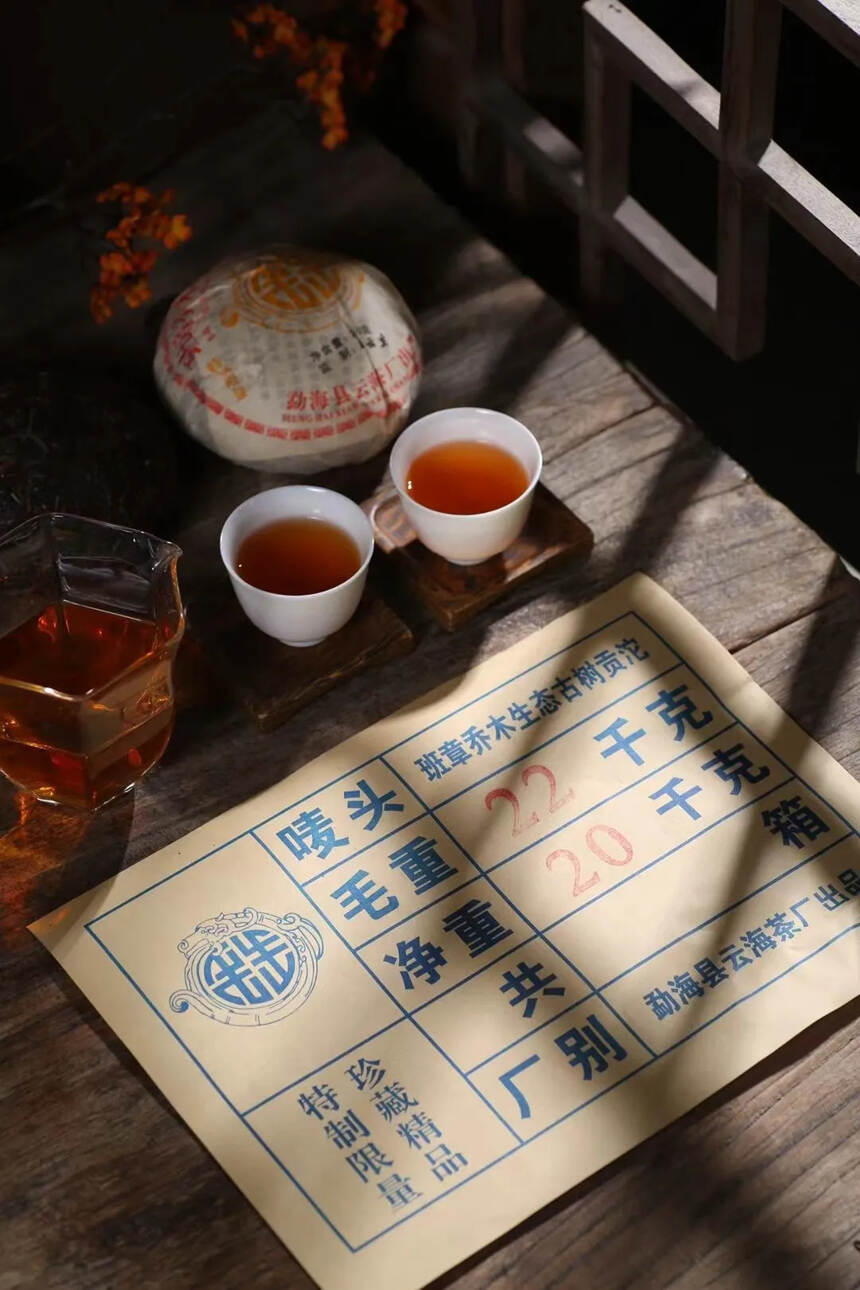 勐海县云海茶厂出
唛头 班章乔木生态古树贡沱
毛重 22 千克
净重 20 千克
共 箱
厂别 勐海县云海茶厂出品
珍藏精品
特制限量